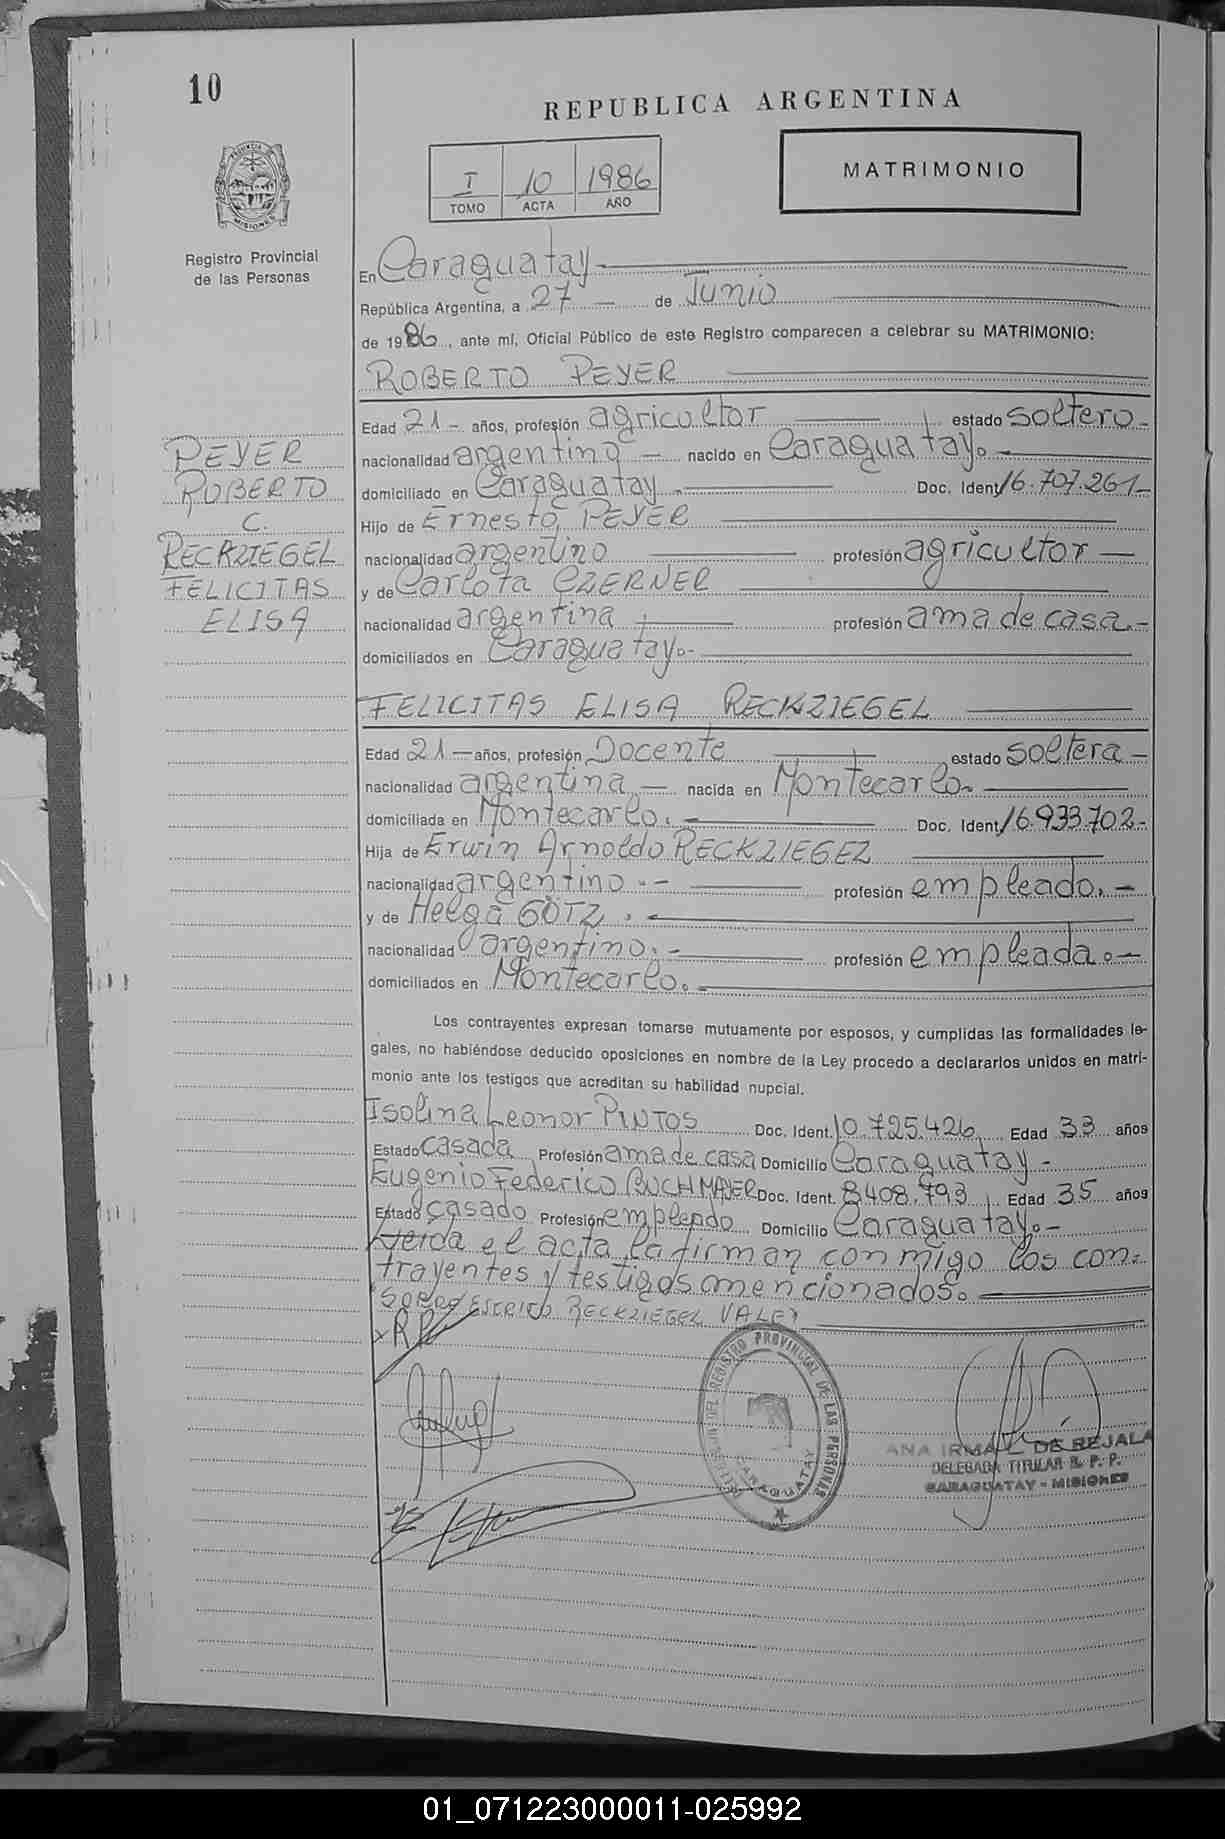 10
REPUBLICA ARGENTINA
I 10 1986
TOMO ACTA AÑO
MATRIMONIO
PROVINCIA
MISIONES
Registro Provincial
de las Personas
En Caraguatay
República Argentina, a 27 - de Junio
de 1986, ante mí, Oficial Público de este Registro comparecen a celebrar su MATRIMONIO:
ROBERTO PEYER
Edad 21 - años, profesión agricultor estado soltero -
nacionalidad argentino - nacido en Caraguatay. -
domiciliado en Caraguatay - Doc. Ident. 16.707.261 -
Hijo de Ernesto PEYER
nacionalidad argentino profesión agricultor -
y de Carlota CZERNER
nacionalidad argentina profesión ama de casa. -
domiciliados en Caraguatay. -
PEYER
ROBERTO
C.
RECKZIEGEL
FELICITAS
ELISA
FELICITAS ELISA RECKZIEGEL
Edad 21 - años, profesión Docente estado soltera -
nacionalidad argentina - nacida en Montecarlo. -
domiciliada en Montecarlo. - Doc. Ident. 16.933.702 -
Hija de Erwin Arnoldo RECKZIEGEL
nacionalidad argentino. - profesión empleado. -
y de Helga GÖTZ. -
nacionalidad argentino. - profesión empleada. -
domiciliados en Montecarlo. -
Los contrayentes expresan tomarse mutuamente por esposos, y cumplidas las formalidades le-
gales, no habiéndose deducido oposiciones en nombre de la Ley procedo a declararlos unidos en matri-
monio ante los testigos que acreditan su habilidad nupcial.
Isolina Leonor PINTOS Doc. Ident. 10.725.426 Edad 33 años
Estado casada Profesión ama de casa Domicilio Caraguatay -
Eugenio Federico BUCHMAYER Doc. Ident. 8408.793 Edad 35 años
Estado casado Profesión empleado Domicilio Caraguatay. -
Leida el acta la firman conmigo los con-
trayentes y testigos mencionados. -
SOBRE ESCRITO RECKZIEGEL VALE
DEL REGISTRO PROVINCIAL DE LAS PERSONAS
CARAGUATAY
ANA IRMA L. DE REJALA
DELEGADA TITULAR R. P. P.
CARAGUATAY - MISIONES
01_071223000011-025992